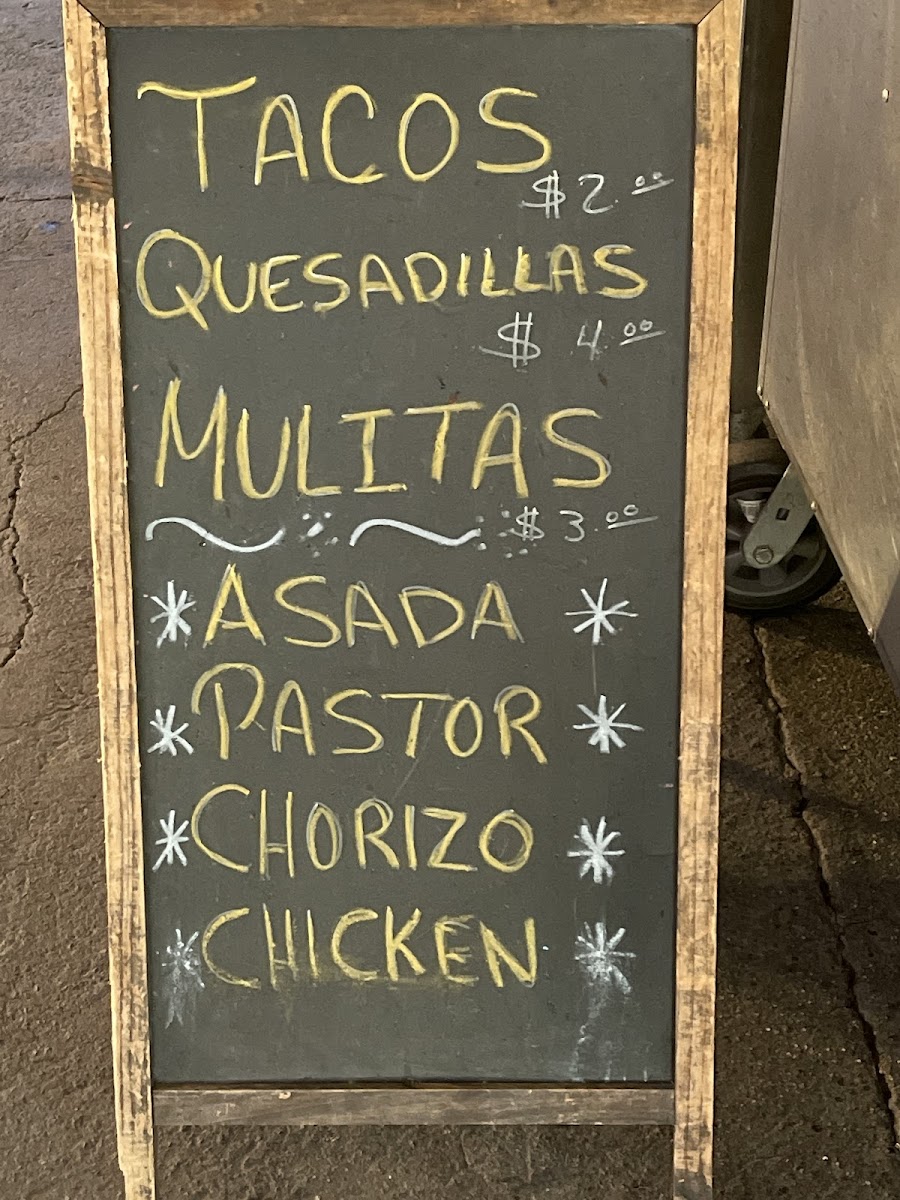 TACOS
$2.00
QUESADILLAS
$4.00
MULITAS
$3.00
* ASADA *
* PASTOR *
* CHORIZO *
* CHICKEN *